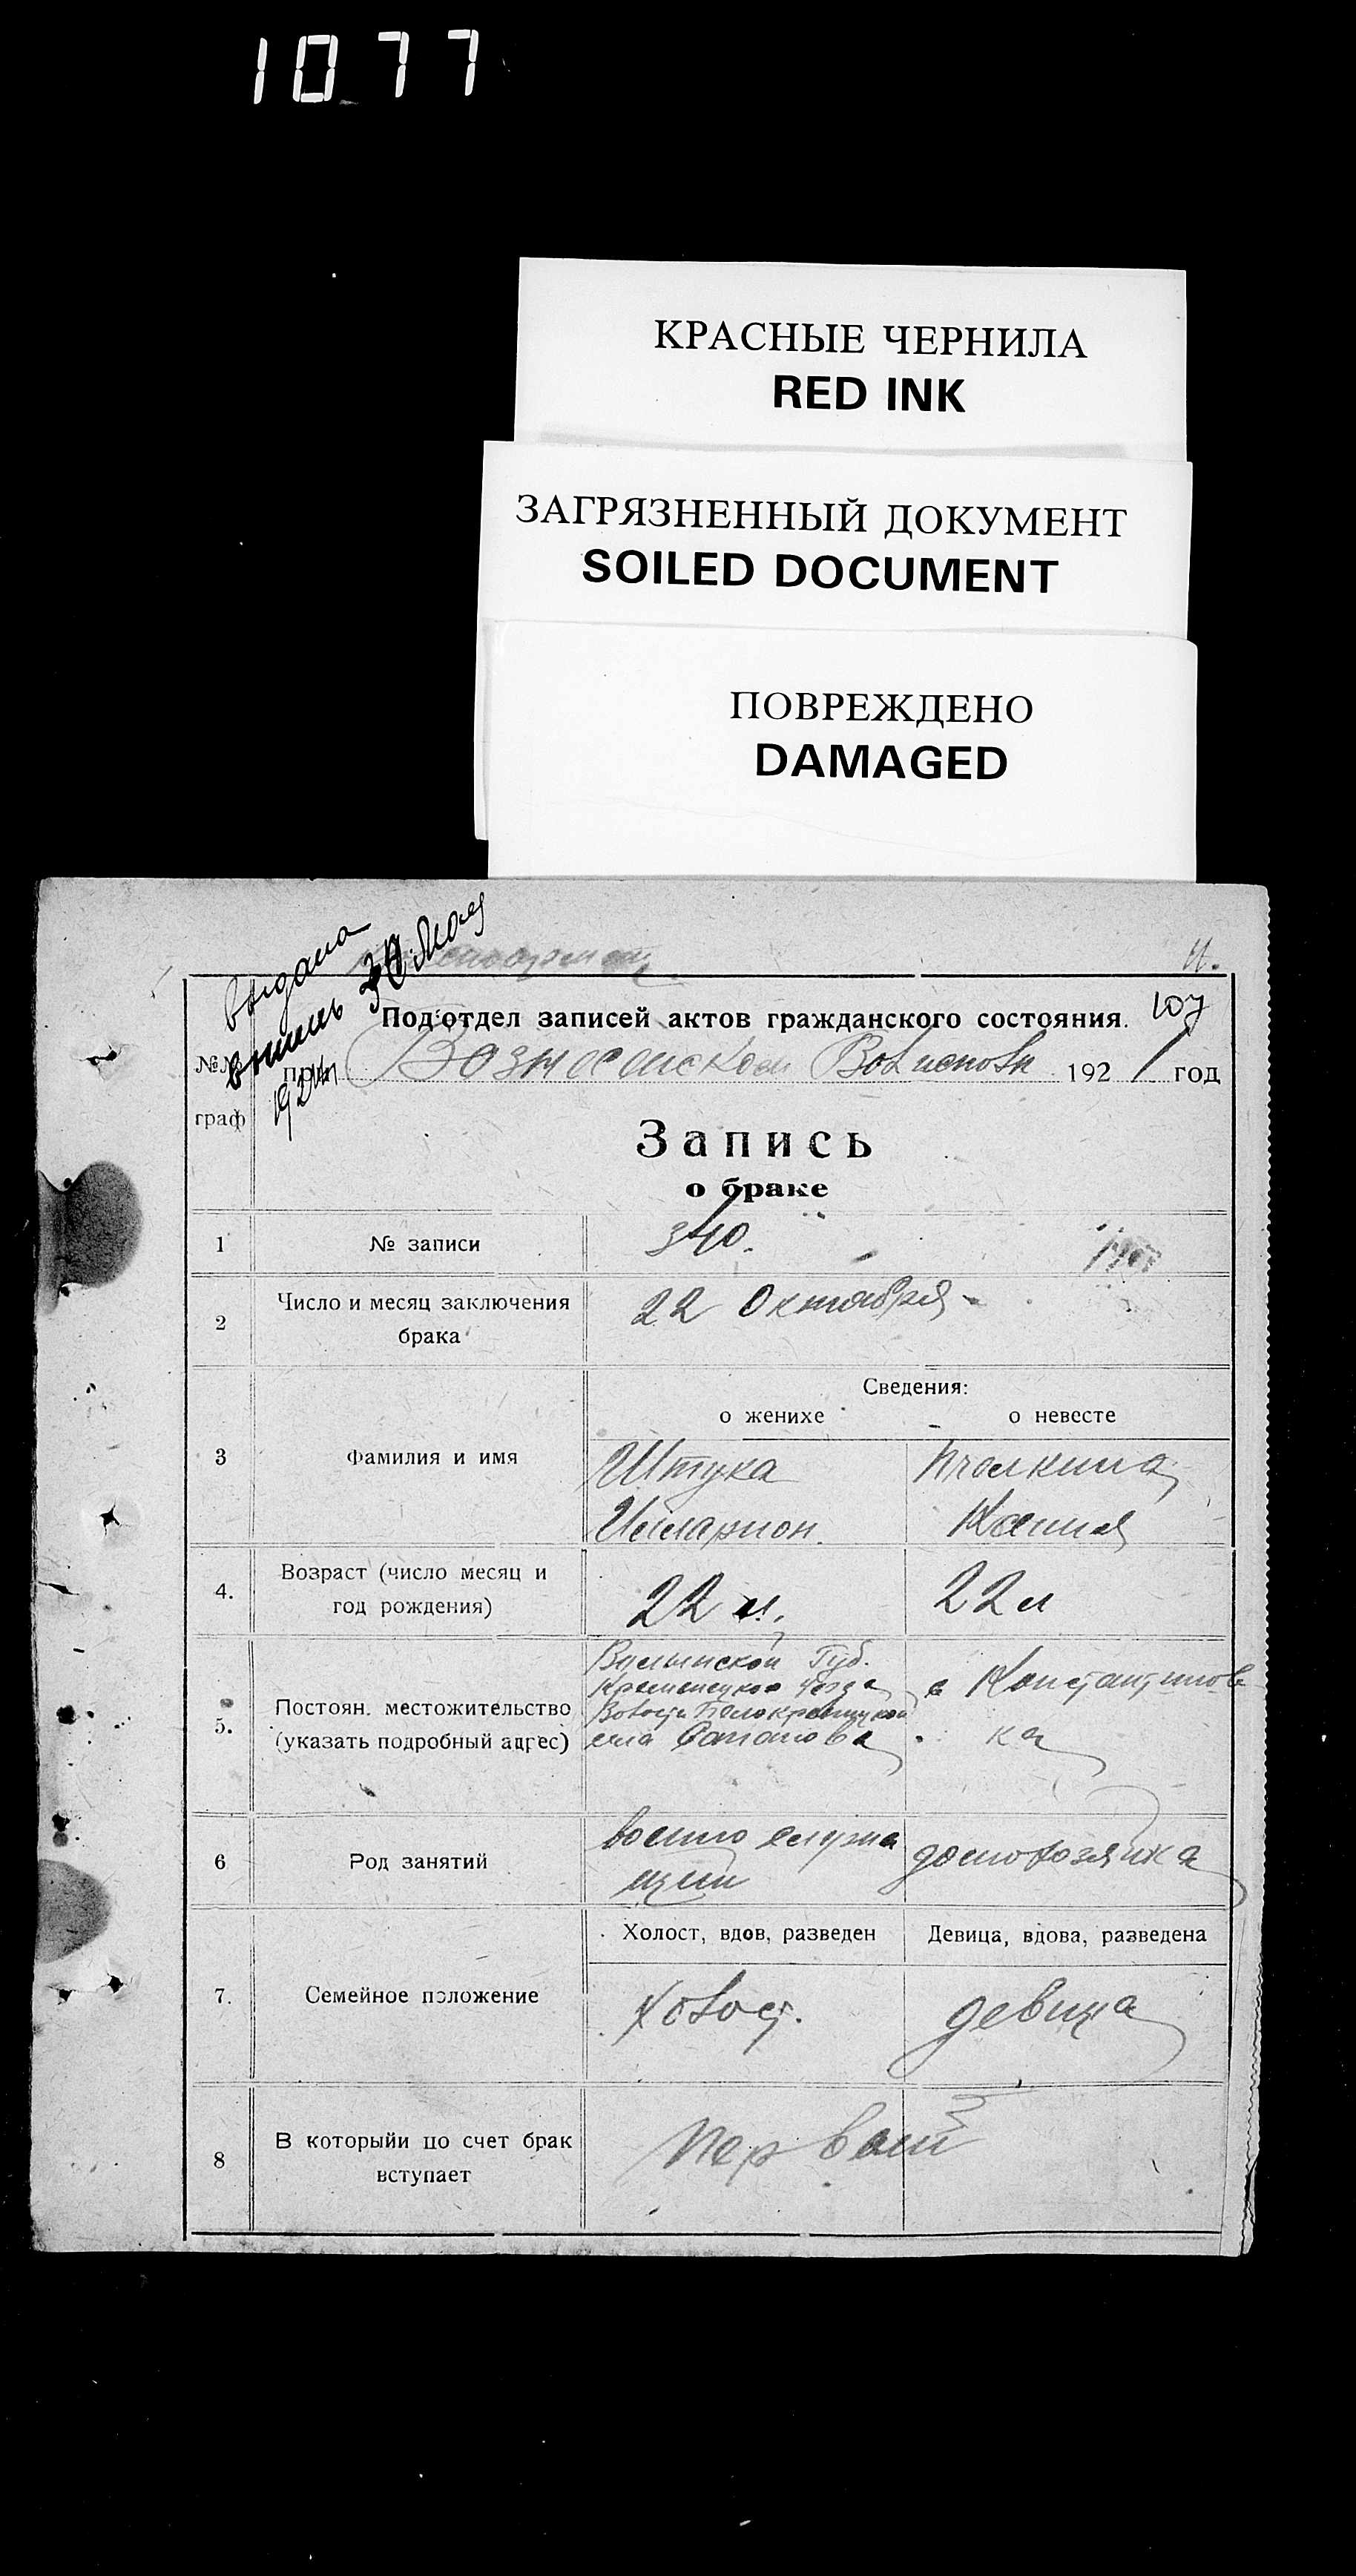 1077
КРАСНЫЕ ЧЕРНИЛА
RED INK
ЗАГРЯЗНЕННЫЙ ДОКУМЕНТ
SOILED DOCUMENT
ПОВРЕЖДЕНО
DAMAGED
выдана
30 Мая
Подотдел записей актов гражданского состояния. 107
№№ при Вознесенском Волисполк 1921 год
граф
Запись
о браке
1 № записи 340.
2 Число и месяц заключения 22 Октября
брака
Сведения:
о женихе о невесте
3 Фамилия и имя Штука Пчолкина
Илларион. Ксения
4. Возраст (число месяц и 22 л. 22 л
год рождения)
Волынской Губ.
Кременецкого Уезда с Константинов
5. Постоян. местожительство Волости Белокреницкой
(указать подробный адрес) села Сапанова ка
6 Род занятий военно служа домохозяйка
щий
Холост, вдов, разведен Девица, вдова, разведена
7. Семейное положение холост. девица
8 В которыйи по счет брак Первый
вступает